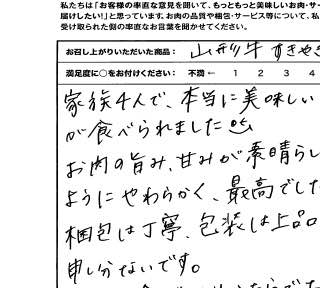 私たちは「お客様の率直な意見を囲いて、もっともっと美味しいお肉・サー
届けしたい!」と思っています。お肉の品質や梱包・サービス等について、私
受け取られた側の率直なお言葉を聞かせてください。
お召し上がりいただいた商品: 山形牛 すきやき
満足度に○をお付けください: 不満 ← 1 2 3 4
家族4人で、本当に美味しい
が食べられました
お肉の旨み、甘みが素晴らし
ようにやわらかく、最高でした
梱包は丁寧、包装は上品
申し分ないです。